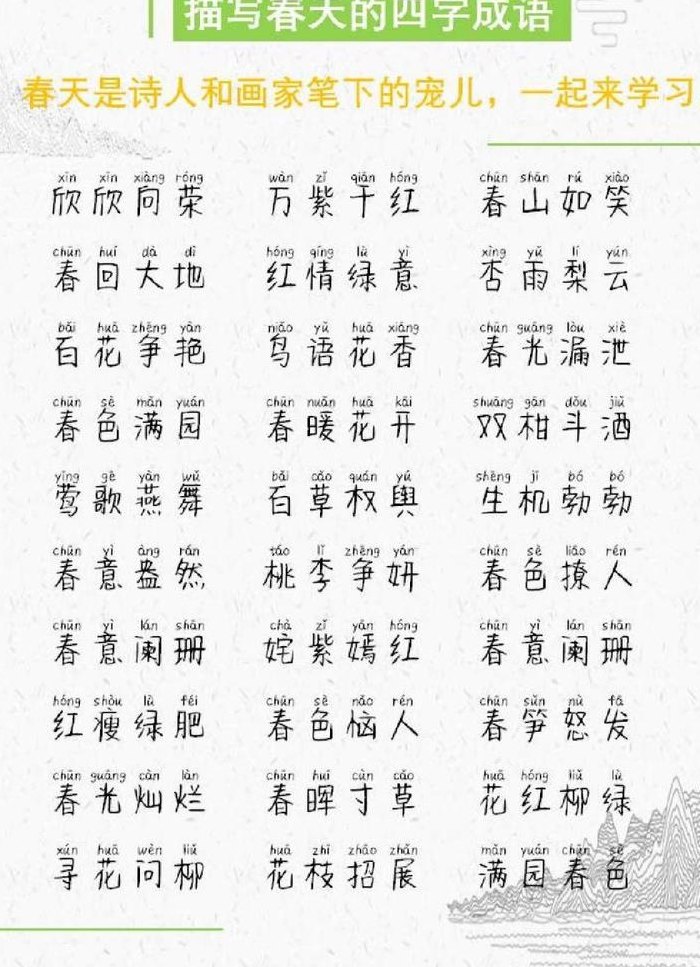 描写春天的四字成语
春天是诗人和画家笔下的宠儿，一起来学习
xīn xīn xiàng róng wàn zǐ qiān hóng chūn shān rú xiào
欣欣向荣 万紫千红 春山如笑
chūn huí dà dì hóng qíng lǜ yì xìng yǔ lí yún
春回大地 红情绿意 杏雨梨云
bǎi huā zhēng yàn niǎo yǔ huā xiāng chūn guāng lòu xiè
百花争艳 鸟语花香 春光漏泄
chūn sè mǎn yuán chūn nuǎn huā kāi shuāng gān dǒu jiǔ
春色满园 春暖花开 双柑斗酒
yīng gē yàn wǔ bǎi cǎo quán yú shēng jī bó bó
莺歌燕舞 百草权舆 生机勃勃
chūn yì àng rán táo lǐ zhēng yán chūn sè liáo rén
春意盎然 桃李争妍 春色撩人
chūn yì lán shān chà zǐ yān hóng chūn yì lán shān
春意阑珊 姹紫嫣红 春意阑珊
hóng shòu lǜ féi chūn sè nǎo rén chūn sǔn nù fā
红瘦绿肥 春色恼人 春笋怒发
chūn guāng càn làn chūn huī cùn cǎo huā hóng liǔ lǜ
春光灿烂 春晖寸草 花红柳绿
xún huā wèn liǔ huā zhī zhāo zhǎn mǎn yuán chūn sè
寻花问柳 花枝招展 满园春色